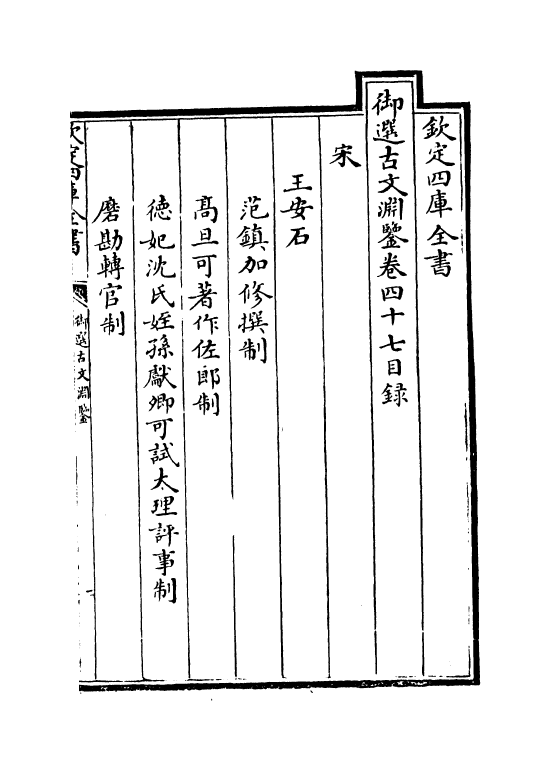 欽定四庫全書
御選古文淵鑒卷四十七目録
宋
王安石
范鎮加修撰制
髙旦可著作佐郎制
徳妃沈氏姪孫獻卿可試太理評事制
磨勘轉官制
欽定四庫全書
御選古文淵鑒
一